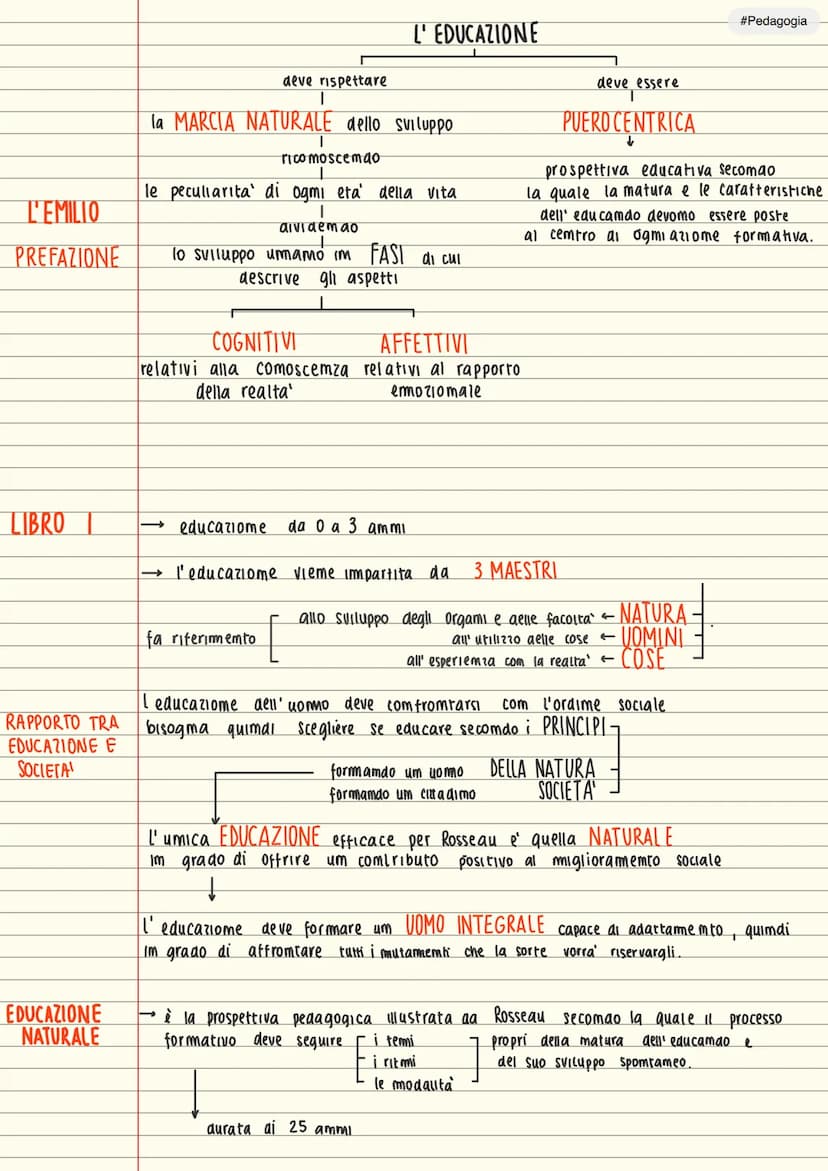 #Pedagogia
L' EDUCAZIONE
deve rispettare
deve essere
la MARCIA NATURALE dello sviluppo
PUEROCENTRICA
riconoscendo
prospettiva educativa secondo
le peculiarita' di ogni eta' della vita
la quale la natura e le caratteristiche
L'EMILIO
dell' educando devono essere poste
dividendo
al centro di ogni azione formativa.
PREFAZIONE
lo sviluppo umano in FASI di cui
descrive gli aspetti
COGNITIVI
AFFETTIVI
relativi alla conoscenza
relativi al rapporto
della realta'
emozionale
LIBRO 1
→ educazione da 0 a 3 anni
→ l'educazione viene impartita da 3 MAESTRI
fa riferimento
allo sviluppo degli organi e delle facolta' ← NATURA
all' utilizzo delle cose ← UOMINI
all' esperienza con la realta' ← COSE
RAPPORTO TRA
EDUCAZIONE E
SOCIETA'
L educazione dell' uomo deve confrontarsi con l'ordine sociale
bisogna quindi scegliere se educare secondo i PRINCIPI
formando un uomo DELLA NATURA
formando un cittadino SOCIETA'
L' unica EDUCAZIONE efficace per Rosseau e' quella NATURALE
in grado di offrire un contributo positivo al miglioramento sociale
L' educazione deve formare un UOMO INTEGRALE capace di adattamento, quindi
in grado di affrontare tutti i mutamenti che la sorte vorra' riservargli.
EDUCAZIONE
NATURALE
→ è la prospettiva pedagogica illustrata da Rosseau secondo la quale il processo
formativo deve seguire
i temi
i ritmi
le modalita'
propri della natura dell' educando e
del suo sviluppo spontaneo.
durata di 25 anni